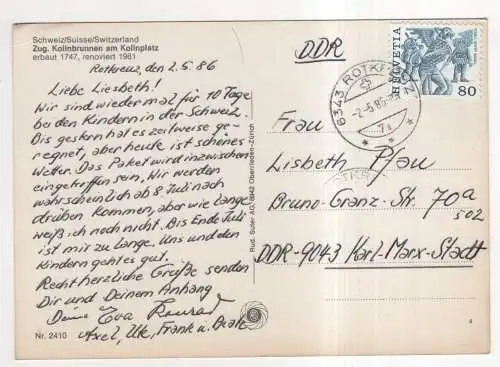 Schweiz/Suisse/Switzerland
Zug. Kolinbrunnen am Kolinplatz
erbaut 1747, renoviert 1981
Rotkreuz, den 2.5.86
Liebe Liesbeth!
Wir sind wieder mal für 10 Tage
bei den Kindern in der Schweiz.
Bis gestern hat es zeitweise ge-
regnet, aber heute ist schönes
Wetter. Das Paket wird inzwischen
eingetroffen sein. Wir werden
wahrscheinlich ab 8. Juli nach
drüben kommen, aber wie lange
weiß ich noch nicht. Bis Ende Juli
ist mir zu lange. Uns und den
Kindern geht es gut.
Recht herzliche Grüße senden
Dir und Deinem Anhang
Deine Eva Konrad
Axel, Ute, Frank u. Beate
Nr. 2410
Rud. Suter AG 8942 Oberrieden-Zürich
DDR
HELVETIA
80
6343 ROTKREUZ
-2.-5.86
Frau
Lisbeth Pfau
Bruno-Granz-Str. 70a
502
DDR-9043 Karl-Marx-Stadt